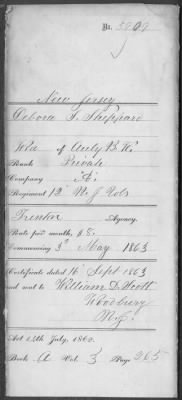 No. 5909
New Jersey
Debora F. Sheppard
Wid of Andy B. W.
Rank Private
Company "A"
Regiment 12" N J Vols
Trenton Agency.
Rate per month, $8.
Commencing 3d May 1863
Certificate dated 16 Sept 1863
and sent to William D. Scott
Woodbury
N.J.
Act 14th July, 1862.
Book A Vol. 3 Page 265